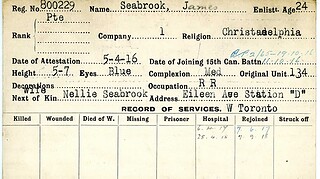 Reg. No. 800229 Name. Seabrook, James Enlistt. Age 24
Pte
Rank Company 1 Religion Christadelphia
Date of Attestation 5-4-16 Date of Joining 15th Can. Battn.
Height 5-7 Eyes Blue Complexion Med Original Unit 134
Decorations Occupation R R
wife
Next of Kin Nellie Seabrook Address Eileen Ave Station "D"
RECORD OF SERVICES. W Toronto
Killed Wounded Died of W. Missing Prisoner Hospital Rejoined Struck off